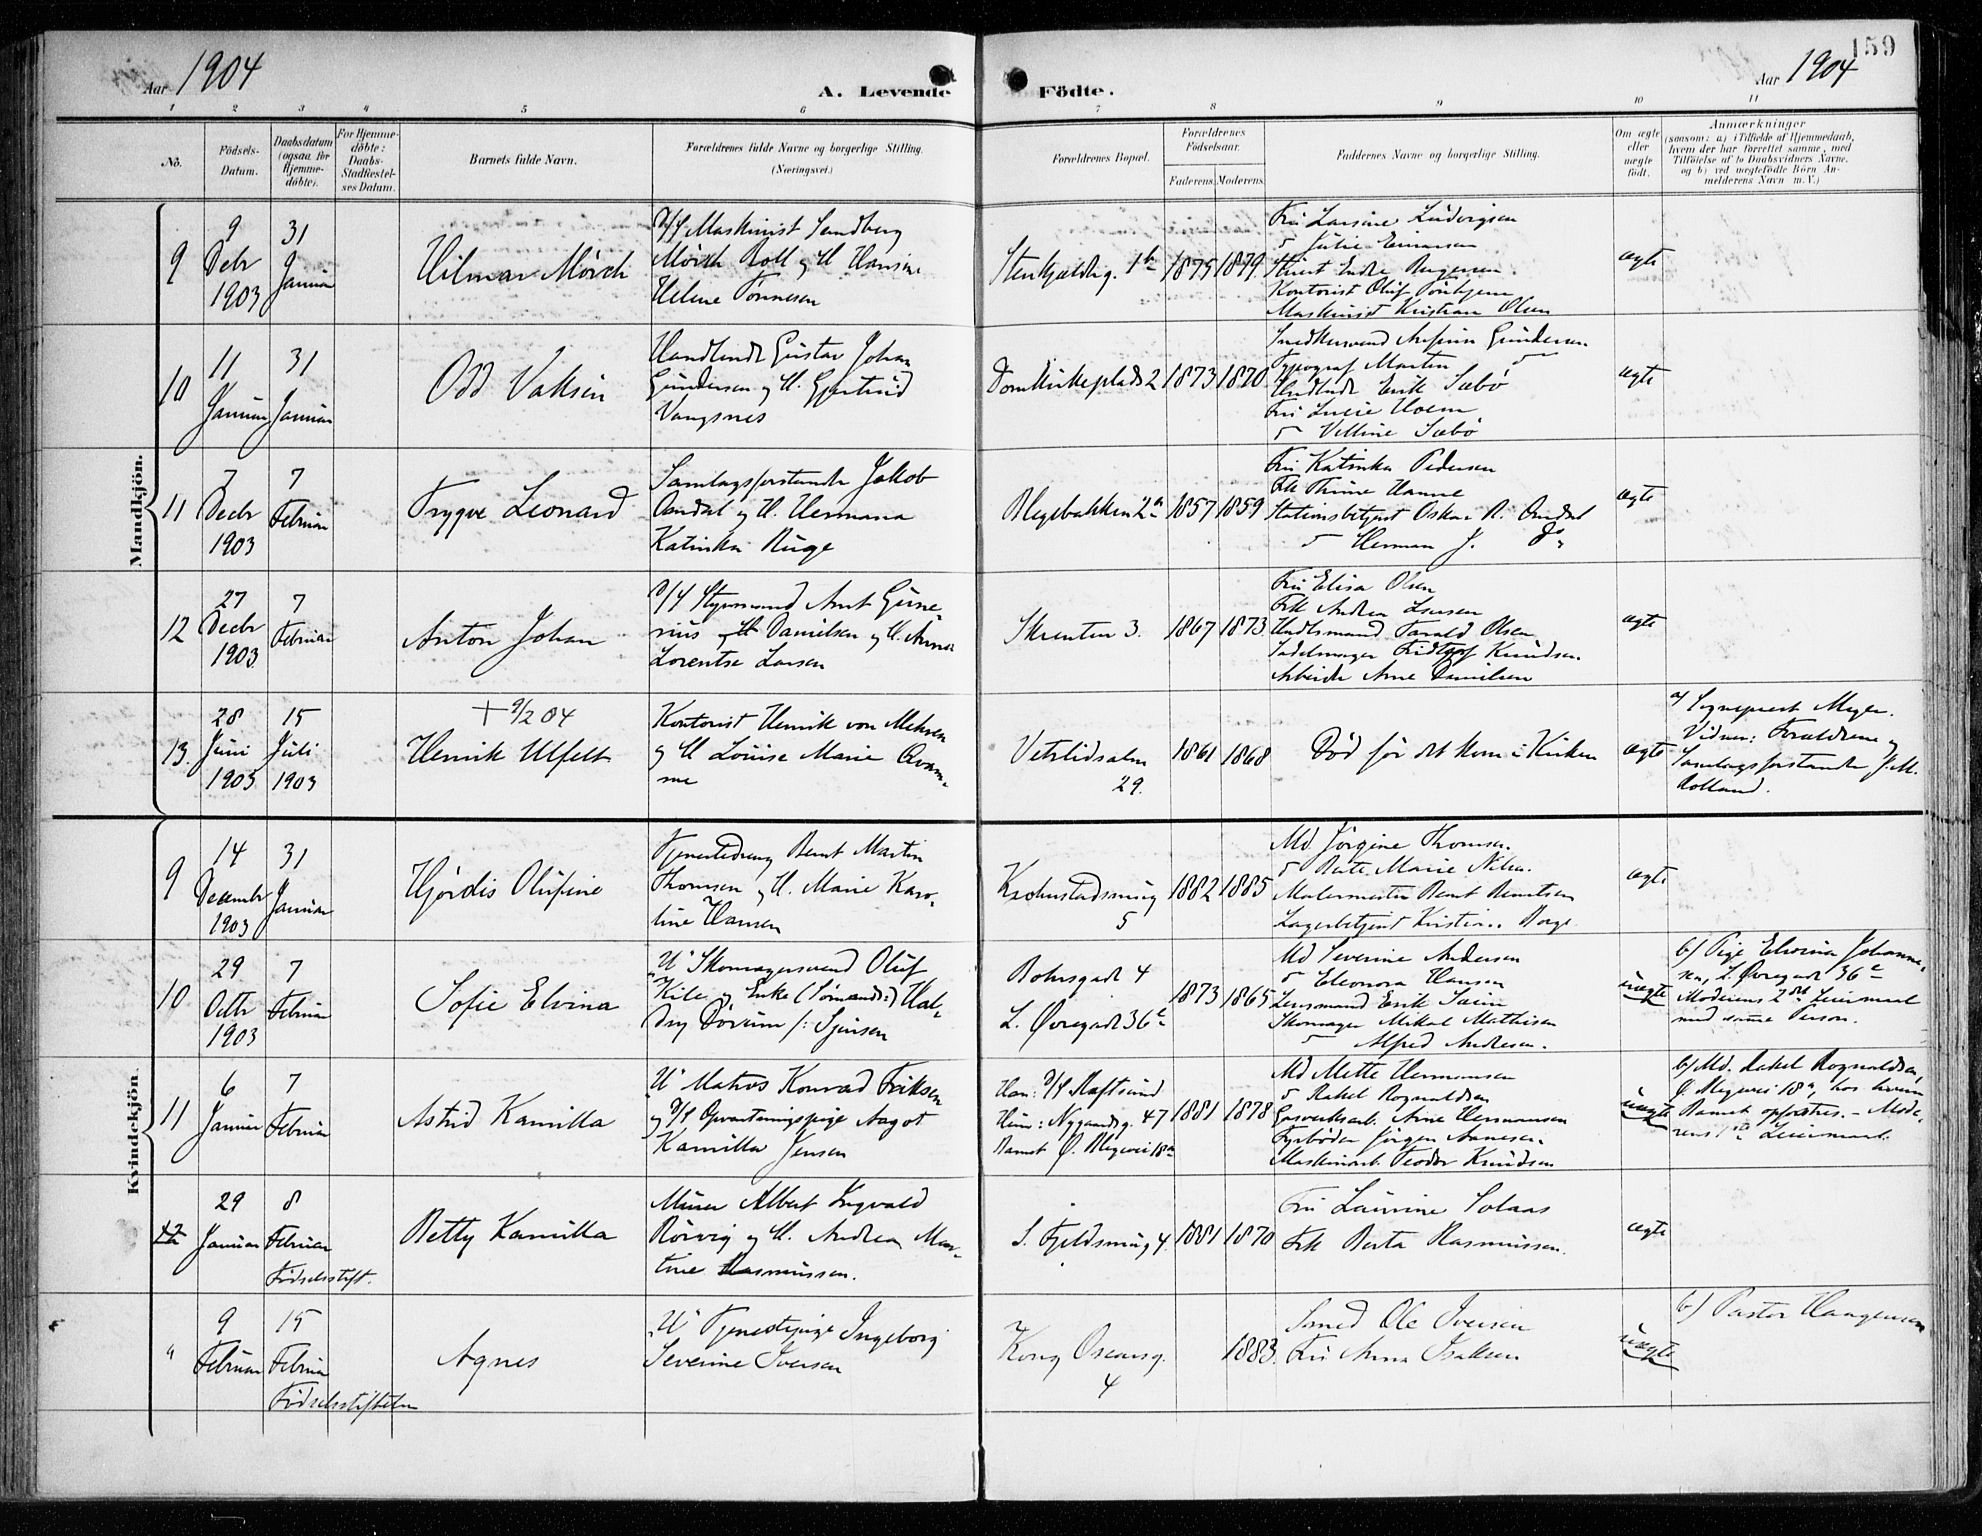 159
Aar 1904
A. Levende Födte.
Aar 1904
1 2 3 4 5 6 7 8 9 10 11
No.
Födsels-Datum.
Daabsdatum (ogsaa for Hjemmedöbte).
For Hjemmedöbte: Daabs-Stadfæstelses Datum.
Barnets fulde Navn.
Forældrenes fulde Navne og borgerlige Stilling.
(Næringsvei.)
Forældrenes Bopæl.
Forældrenes Födselsaar.
Faderens. Moderens.
Faddernes Navne og borgerlige Stilling.
Om ægte eller uægte födt.
Anmærkninger
(saasom: a) i Tilfælde af Hjemmedaab,
hvem der har forrettet samme, med
Tilföielse af to Daabsvidners Navne,
og b) ved uægtefödte Börn Anmelderens Navn m. V.)
Mandkjön.
9
9 Decbr 1903
31 Januar
Hilmar Mörch
D/S Maskinist Sandberg
Mörch Roll og H. Hansine
Helene Tönnesen
Stenkjælderg. 1b
1875 1879
Fru Larsine Ludvigsen
" Julie Einarsen
Kontorist Oluf
Maskinist Kristian Olsen
ægte
10
11 Januar
31 Januar
Odd Vaksin
Handlende Gustav Johan
Gundersen og H. Gjertrud
Vangsnes
Domkirkeplads 2
1873 1870
Snedkersvend Gundersen
Typograf Martin "
Handlende Erik Sæbö
Fru Lucie Hoem
" Velline Sæbö
ægte
11
7 Decbr 1903
7 Februar
Trygve Leonard
Samlagsforstander Jakob
Aandal og H. Hermana
Katinka Ruge
Blegebakken 2a
1857 1859
Fru Katinka Pedersen
Frk Thrine Hanne
Stationsbetjent Oskar R.
" Herman J.
ægte
12
27 Decbr 1903
7 Februar
Anton Johan
D/S Styrmand Arnt Gunerius
Danielsen og H. Anna
Lorentse Larsen
Skrenten 3.
1867 1873
Fru Elisa Olsen
Frk Andrea Larsen
Handelsmand Tarald Olsen
Sadelmager Fridtjof Knudsen
Arbeider Arne Danielsen
ægte
13.
28 Juni 1903
15 Juli 1903
+ 9/2 04
Henrik Ulfelt
Kontorist Henrik von Mehren
og H Louise Marie Qvamme
Vetrlidsalm 29.
1861 1868
Död för det kom i Kirken
ægte
a) Sognepræst Meyer.
Vidner: Forældrene og
Samlagsforstander J. M.
Rolland.
Kvindekjön.
9
14 Decembr 1903
31 Januar
Hjördis Olufine
Tjenestedreng Bernt Martin
Thomsen og H. Marie Karoline
Hansen
Krohnstadsmug 5
1882 1885
Md Jörgine Thomsen.
" Berte Marie Nilsen.
Malermester Bernt Berntsen
Lagerbetjent Kristian Borge.
ægte
10
29 Octbr 1903
7 Februar
Sofie Elvina
U' Skomagersvend Oluf
Kile og Enke (Sömands:) Halding
Dörum /: Sjursen
Bohrsgade 4
L. Øvregade 36c
1873 1865
Md Severine Andersen
" Eleonora Hansen
Lensmand Erik Sæim
Skomager Mikal Mathisen
" Alfred Andresen.
uægte
b) Pige Elvina Johannesen,
L. Øvregade 36c
Moderens 2det Leiermaal
med samme Person.
11
6 Januar
7 Februar
Astrid Kamilla
U' Matros Konrad Eriksen
og D/S Opvartningspige Aagot
Kamilla Jensen
Han: D/S Raftsund
Hun: Nygaardsg. 47
Barnet Ø. Blegevei 18a
1881 1878
Md Mette Hermansen
" Rakel Rognaldsen
Gasverksarb. Arne Hermansen
Fyrböder Jörgen Arnesen.
Maskinarb. Teodor Knudsen
uægte
b) Md. Rakel Rognaldsen,
Ø Blegevei 18a, hos hvem
Barnet opfostres. – Moderens
1ste Leiermaal.
12
29 Januar
8 Februar
Födselsstift.
Betty Kamilla
Murer Albert Ingvald
Rörvig og H. Andrea Martine
Rasmussen.
S. Fjeldsmug 4.
1881 1870
Fru Laurine Solaas
Frk Berta Rasmussen.
ægte
"
9 Februar
15 Februar
Födselsstiftelsen
Agnes
U' Tjenestepige Ingeborg
Severine Iversen
Kong Oscarsg. 4
1883.
Smed Ole Iversen
Fru Anna Isaksen
uægte
b) Pastor Haagensen